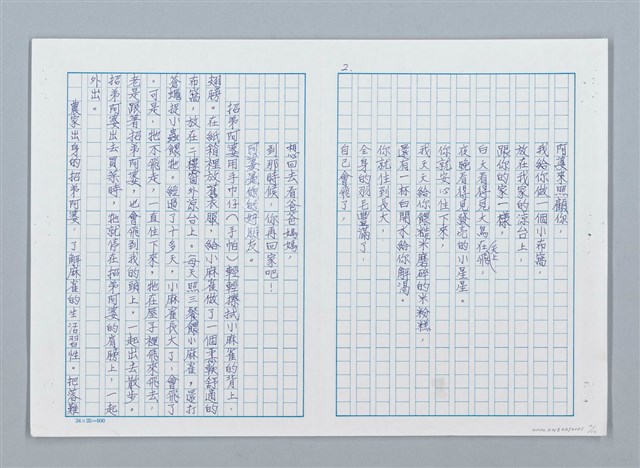 2.
阿婆來照顧你
我給你做一個小布窩，
放在我家的涼台上，
跟你的家一樣，
白天看得見大鳥在天上飛，
夜晚看得見發亮的小星星。
你就安心住下來，
我天天給你餵糙米磨碎的米粉糕，
還有一杯白開水給你解渴。
你就住到長大，
全身的羽毛豐滿了，
自己會飛了，
想回去看爸爸媽媽，
到那時候，你再回家吧！
阿婆
的好朋友。
招弟阿婆用手巾仔（手帕）輕輕擦拭小麻雀的背上、
翅膀。在紙箱裡放舊衣服，給小麻雀做了一個柔軟舒適的
布窩，放在二樓窗外涼台上。每天照三餐餵小麻雀，還打
蒼蠅捉小蟲餵牠。經過了十多天，小麻雀長大了，會飛了
。可是，牠不飛走，一直住下來，牠在屋子裡飛來飛去，
老是跟著招弟阿婆，也會飛到我的頭上，一起出去散步。
招弟阿婆出去買菜時，牠就停在招弟阿婆的肩膀上，一起
外出。
農家出身的招弟阿婆，了解麻雀的生活習性。把落難
24×25=600